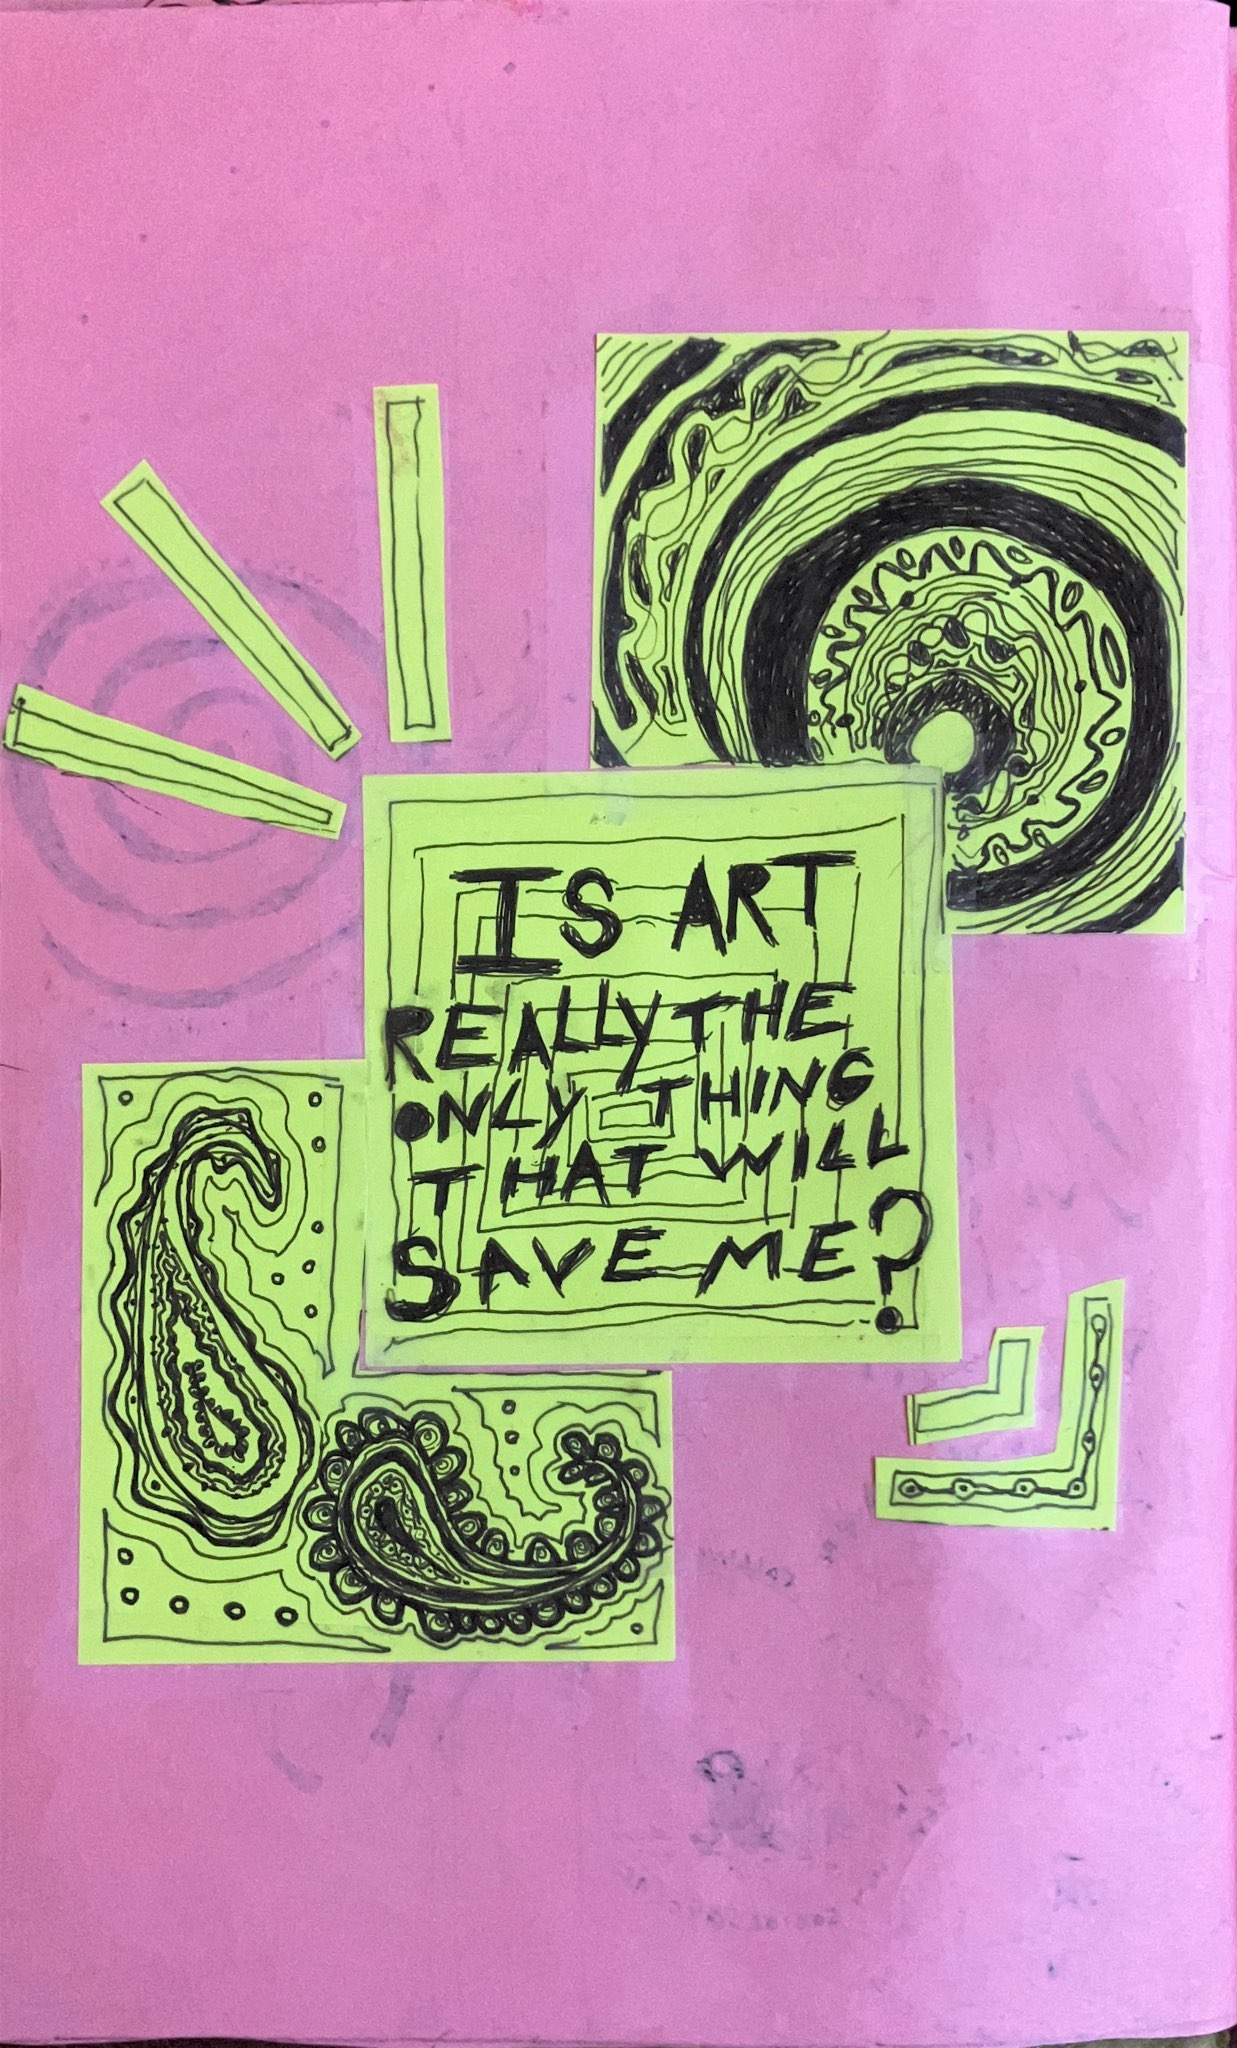 IS ART
REALLY THE
ONLY THING
THAT WILL
SAVE ME?